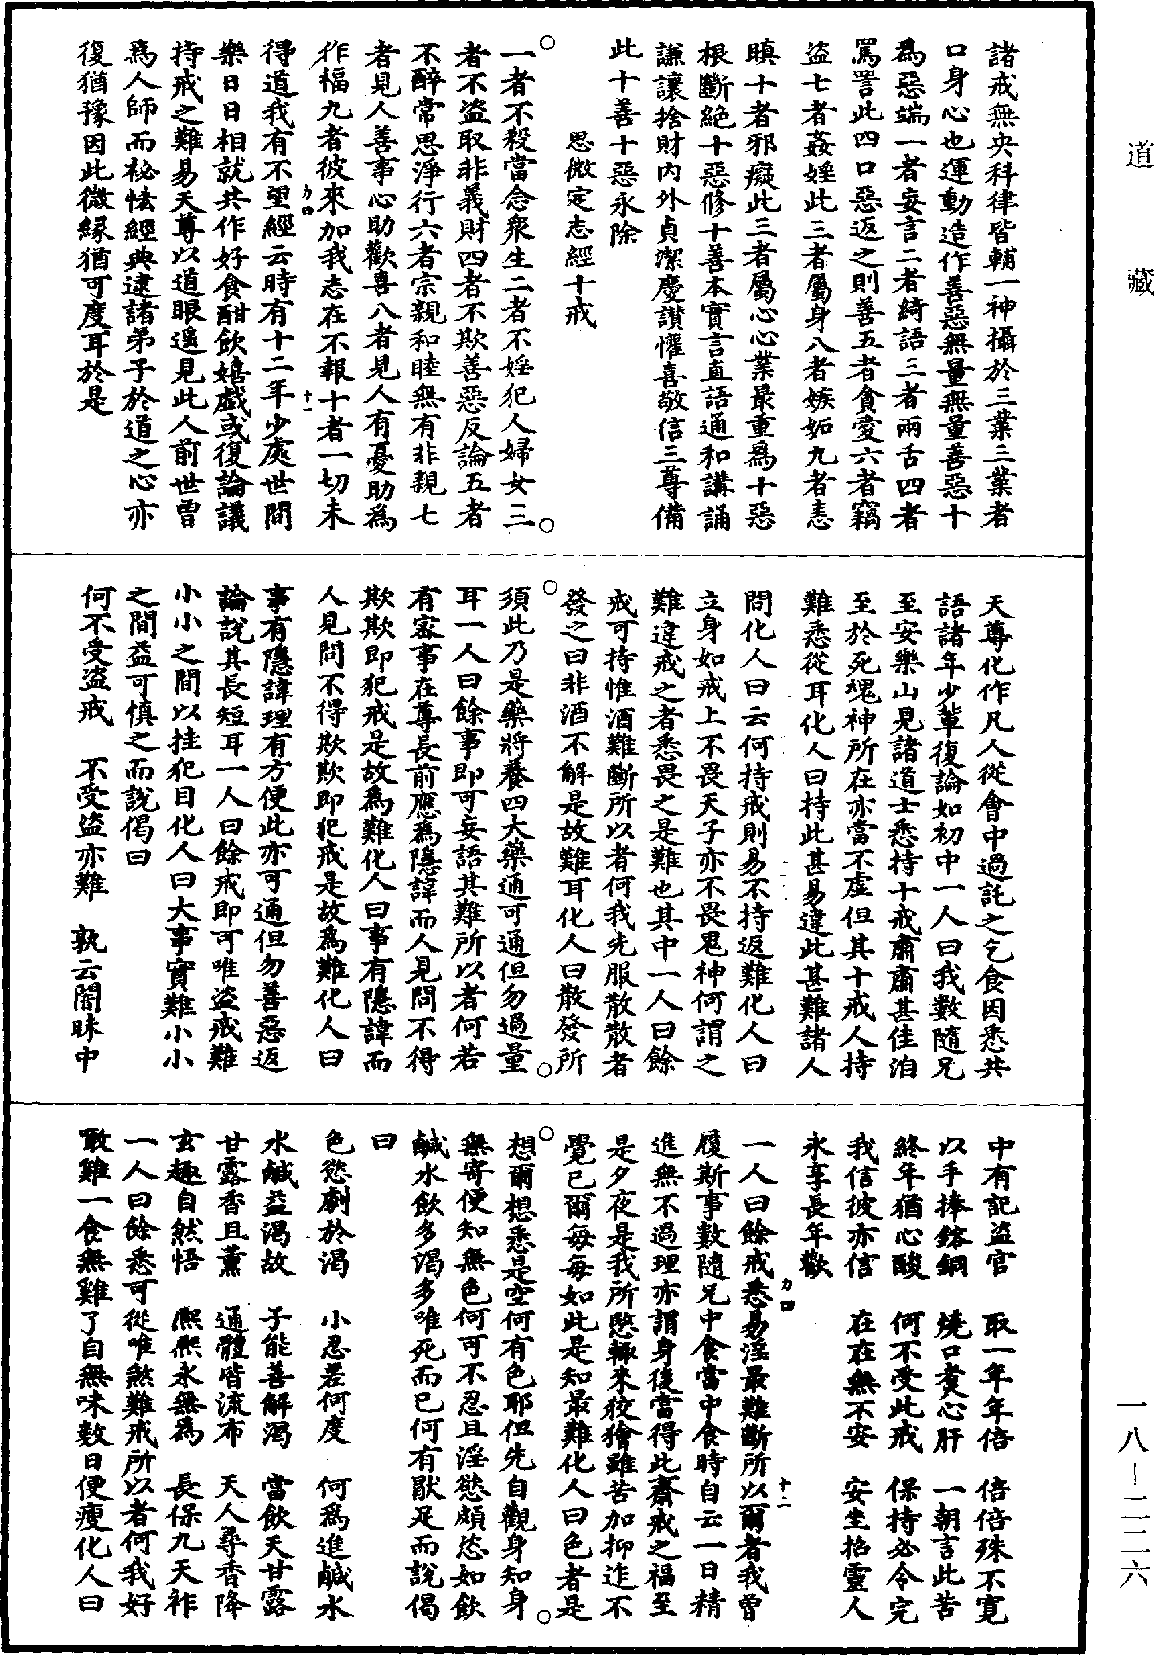 道藏
諸戒無央科律皆輔一神攝於三業三業者
口身心也運動造作善惡無量無量善惡十
為惡端一者妄言二者綺語三者兩舌四者
罵詈此四口惡返之則善五者貪愛六者竊
盜七者姦婬此三者屬身八者嫉妬九者恚
瞋十者邪癡此三者屬心心業最重為十惡
根斷絕十惡修十善本實言直語通和講誦
謙讓捨財內外貞潔慶讚懽喜敬信三尊備
此十善十惡永除
思微定志經十戒
一者不殺當念衆生二者不婬犯人婦女三
者不盜取非義財四者不欺善惡反論五者
不醉常思淨行六者宗親和睦無有非親七
者見人善事心助歡喜八者見人有憂助為
作福九者彼來加我志在不報十者一切未
力四 十一
得道我有不望經云時有十二年少處世間
樂日日相就共作好食酣飲嬉戲或復論議
持戒之難易天尊以道眼遥見此人前世曾
為人師而祕恡經典逮諸弟子於道之心亦
復猶豫因此微緣猶可度耳於是
天尊化作凡人從會中過託之乞食因悉共
語諸年少輩復論如初中一人曰我數隨兄
至安樂山見諸道士悉持十戒肅肅甚佳洎
至於死魂神所在亦當不虛但其十戒人持
難悉從耳化人曰持此甚易違此甚難諸人
問化人曰云何持戒則易不持返難化人曰
立身如戒上不畏天子亦不畏鬼神何謂之
難違戒之者悉畏之是難也其中一人曰餘
戒可持惟酒難斷所以者何我先服散散者
發之日非酒不解是故難耳化人曰散發所
須此乃是藥將養四大藥通可通但勿過量
耳一人曰餘事即可妄語其難所以者何若
有審事在尊長前應為隱諱而人見問不得
欺欺即犯戒是故為難化人曰事有隱諱而
人見問不得欺欺即犯戒是故為難化人曰
事有隱諱理有方便此亦可通但勿善惡返
論說其長短耳一人曰餘戒即可唯盜戒難
小小之間以挂犯目化人曰大事實難小小
之間益可慎之而說偈曰
何不受盜戒 不受盜亦難 孰云闇昧中
中有記盜官 取一年年倍 倍倍殊不寬
以手捧鎔銅 燒口煑心肝 一朝言此苦
終年猶心酸 何不受此戒 保持必令完
我信彼亦信 在在無不安 安生招靈人
永享長年歡
力四 十二
一人曰餘戒悉易淫最難斷所以爾者我曾
履斯事數隨兄中食當中食時自云一日精
進無不過理亦謂身後當得此齋戒之福至
是夕夜是我所愍輒來狡獪雖苦加抑迮不
覺已爾每每如此是知最難化人曰色者是
想爾想悉是空何有色耶但先自觀身知身
無寄便知無色何可不忍且淫慾頗恣如飲
鹹水飲多渴多唯死而已何有厭足而說偈
曰
色慾劇於渴 小忍差何度 何為進鹹水
水鹹益渴故 子能善解渴 當飲天甘露
甘露香且薰 通體皆流布 天人尋香降
玄趣自然悟 熙熙永無為 長保九天祚
一人曰餘悉可從唯煞難戒所以者何我好
噉雞一食無雞了自無味數日便瘦化人曰
一八—二二六